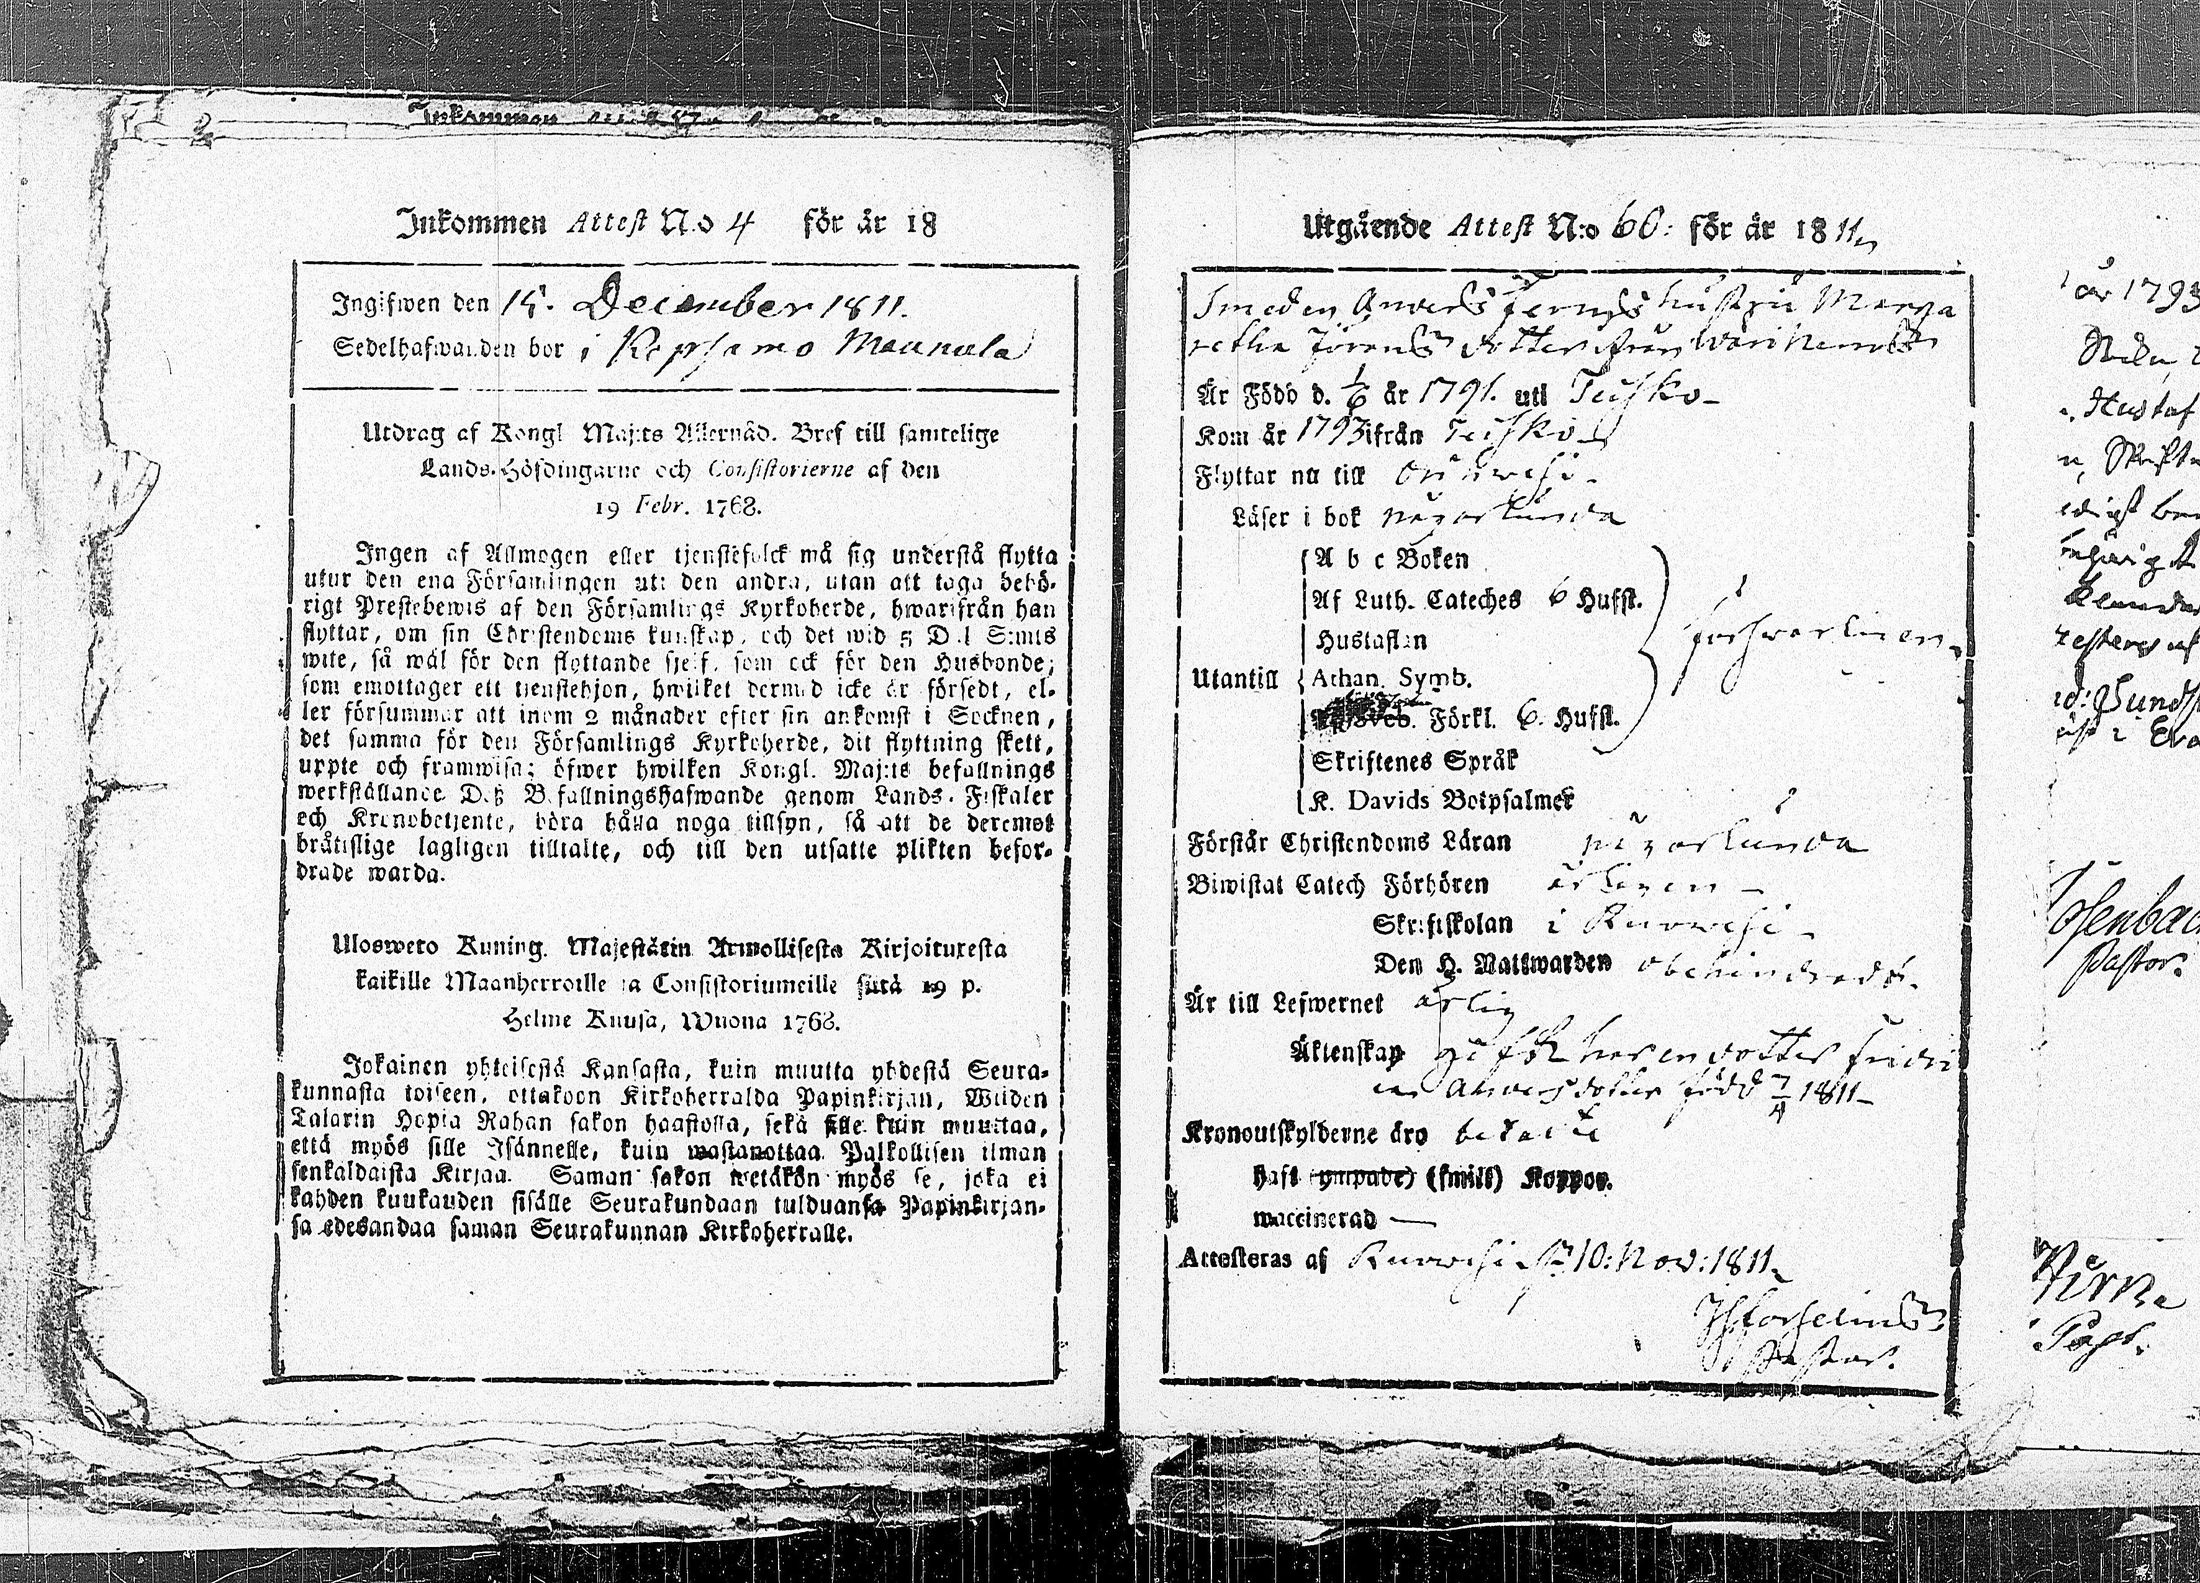 Inkommen
Inkommen Attest N:o 4 för år 18
Ingifwen den 15. December 1811.
Sedelhafwanden bor i Repsamo Maunula
Utdrag af Kongl Maj:ts Allernåd. Bref till samtelige
Lands-Höfdingarne och Consistorierne af den
19 Febr. 1768.
Ingen af Allmogen eller tjenstefolck må sig understå flytta
utur den ena Församlingen uti den andra, utan att taga behö-
rigt Prestebewis af den Församlings Kyrkoherde, hwarifrån han
flyttar, om sin Christendoms kunskap, och det wid 5 Dal S:mts
wite, så wäl för den flyttande sjelf, som ock för den Husbonde;
som emottager ett tjenstehjon, hwilket dermed icke är försedt, el-
ler försummar att inom 2 månader efter sin ankomst i Socknen,
det samma för den Församlings Kyrkoherde, dit flyttning skett,
uppte och framwisa; öfwer hwilken Kongl. Maj:ts befallnings
werkställande Deß Befallningshafwande genom Lands-Fiskaler
och Kronobetjente, böra hålla noga tillsyn, så att de deremot
bråtislige lagligen tilltalte, och till den utsatte plikten befor-
drade warda.
Ulosweto Kuning. Majestätin Armollisesta Kirjoituxesta
kaikille Maanherroille ja Consistoriumeille siitä 19 p.
Helme Kuusa, Wuona 1768.
Jokainen yhteisestä Kansasta, kuin muutta yhdestä Seura-
kunnasta toiseen, ottakoon Kirkoherralda Papinkirjan, Wiiden
Talarin Hopia Rahan sakon haastolla, sekä sille kuin muuttaa,
että myös sille Isännelle, kuin wastanottaa Palkollisen ilman
senkaldaista Kirjaa. Saman sakon wetäkön myös se, joka ei
kahden kuukauden sisälle Seurakundaan tulduansa Papinkirjan-
sa edesandaa saman Seurakunnan Kirkoherralle.
Utgående Attest N:o 60: för år 1811
Smeden Anders hustru Marga
retha Jörans dotter från
Är Född d. 1/6 år 1791. uti Tusko
Kom år 1793 ifrån Tusko
Flyttar nu till Orihwesi.
Läser i bok någorlunda
A b c Boken
Af Luth. Cateches 6 Hufst.
Hustaflan
försvarligen
Utantill Athan. Symb.
Sveb. Förkl. 6. Hufst.
Skriftenes Språk
K. Davids Botpsalmer
Förstår Christendoms Läran någorlunda
Biwistat Catech Förhören årligen
Skriftskolan i Ruowesi
Den H. Nattwarden obehindradt.
Är till Lefwernet ärlig
Äktenskap gift har en dotter
Andersdotter född 7/4 1811
Kronoutskylderne äro betalte
Haft (ympade) (smitt) Koppor.
waccinerad —
Attesteras af Ruowesi d. 10: Nov: 1811
Pastor.
år 1793
Hustaf
Pastor.
Past.